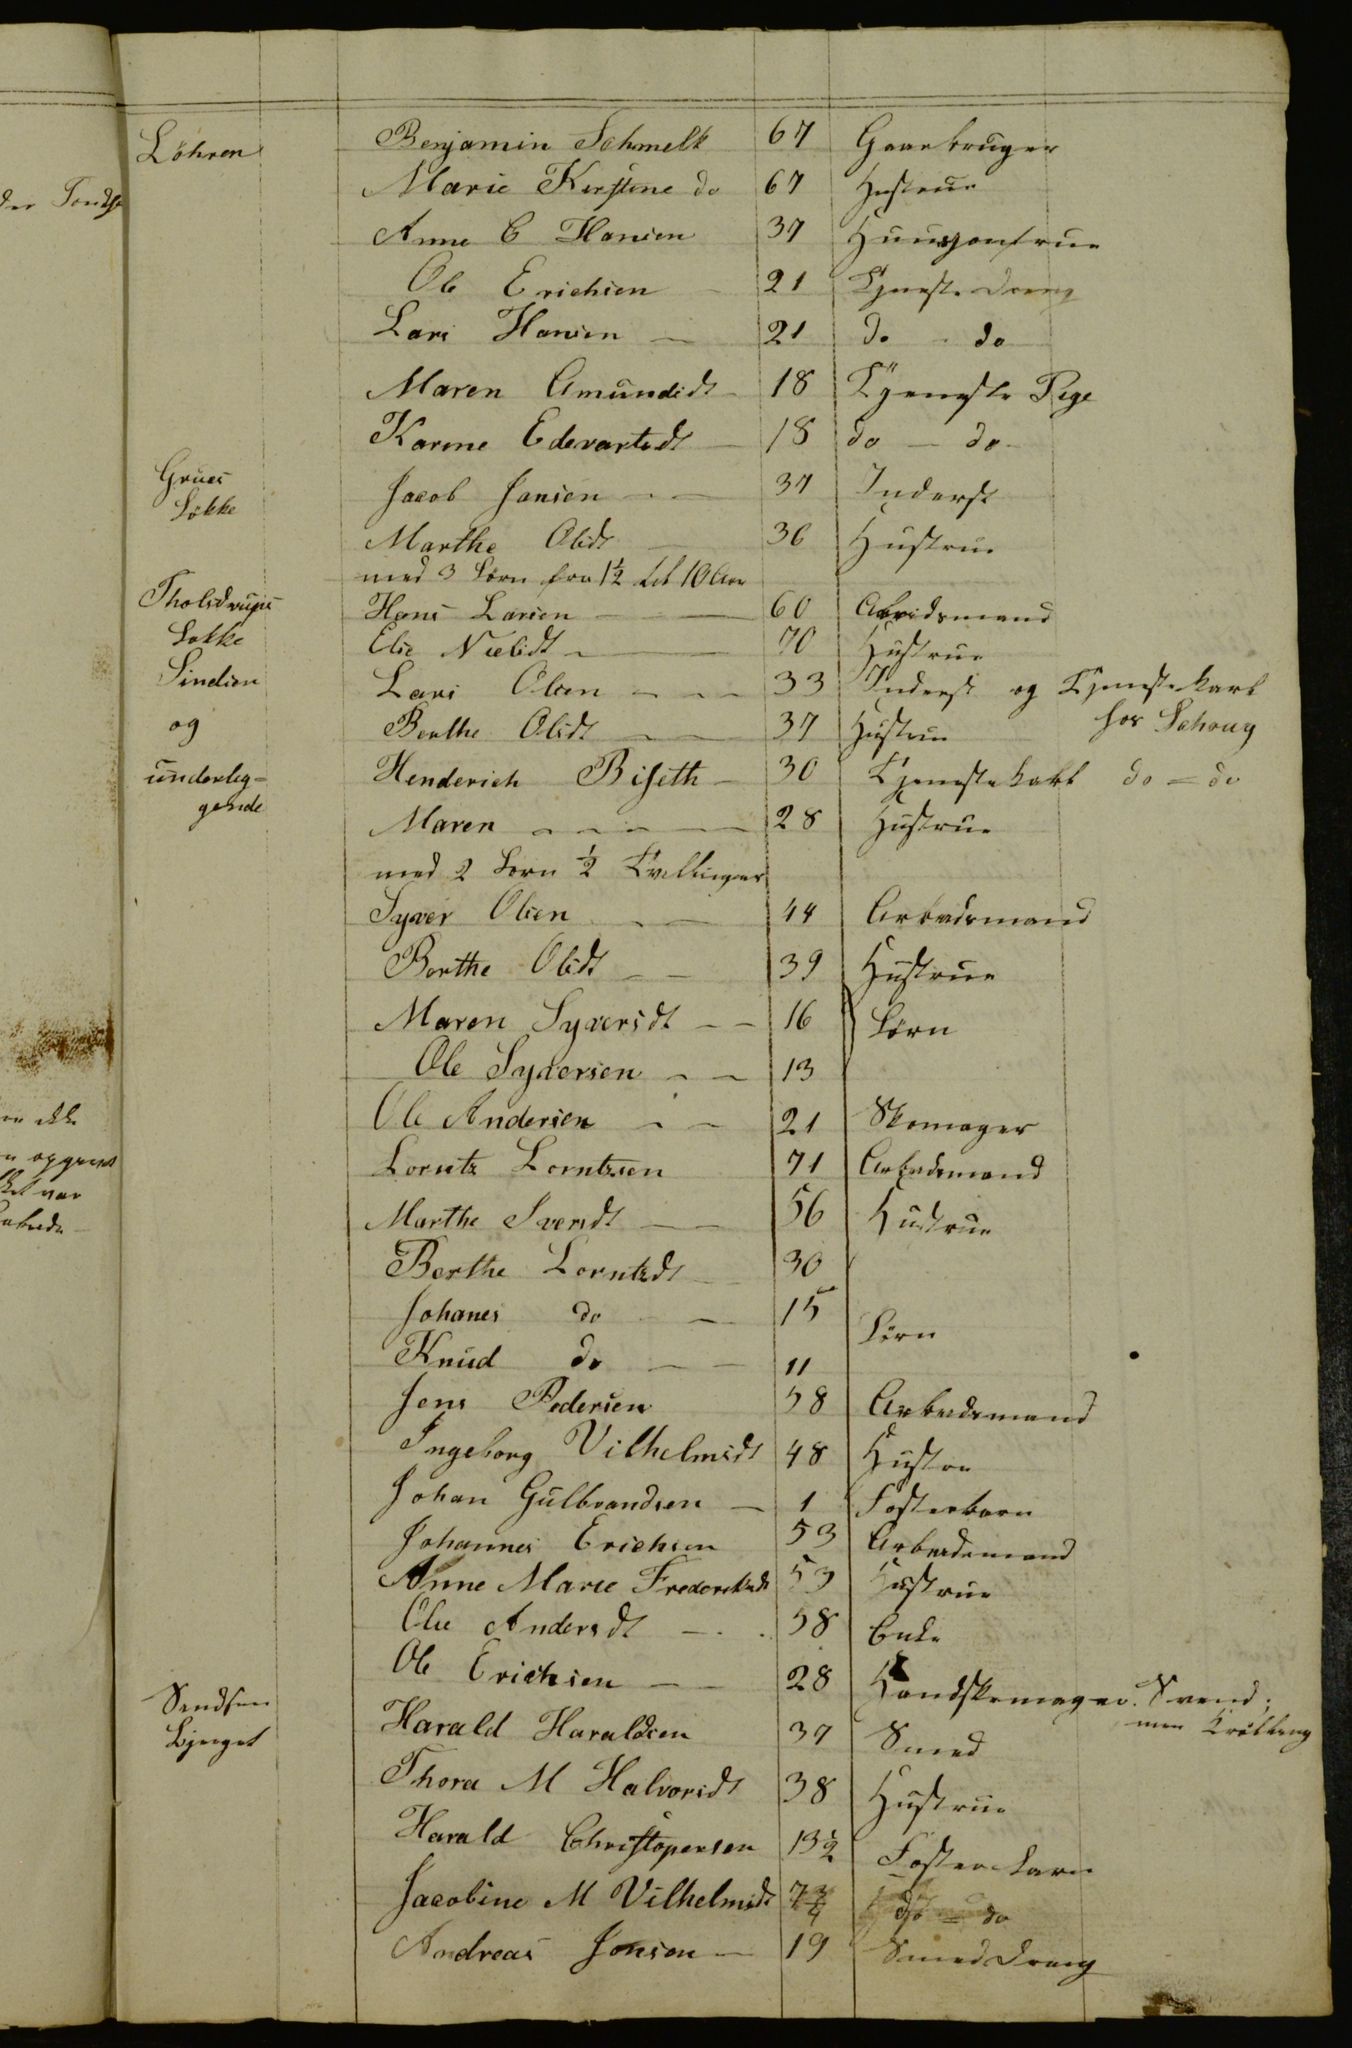 Löhren Benjamin Schmelk 67 Gaarbruger
Marie Kirstine do 67 Hustrue
Anne C Hansen 37 Huusjomfrue
Ole Erichsen 21 Tjenestedreng
Lars Hansen 21 do do
Maren Amundsdt 18 Tjeneste Pige
Karine Edevartsdt 18 do do
Grües Jacob Jansen 37 Inderst
Løkke
Marthe Olsdt 36 Hustrue
med 3 børn fra 1½ til 10 Aar
Tholstrups Hans Larsen 60 Arbeidsmand
Løkke Else Nielsdt 70 Hustrue
Lindien Lars Olsen 33 Inderst og Tjenestekarl
og Berthe Olsdt 37 Hustrue hos Schoug
underlig= Henderich Biseth 30 Tjenestekarl do = do
gende Maren 28 Hustrue
med 2 børn ½ Tvillinger
Syver Olsen 44 Arbeidsmand
Berthe Olsdt 39 Hustrue
Maren Syversdt 16 børn
Ole Syversen 13
Ole Andersen 21 Skomager
Lorntz Lorntzsen 71 Arbeidsmand
Marthe Iversdt 56 Hustrue
Berthe Lorntzdt 30
Johanes do 15 børn
Knud do 11
Jens Pedersen 58 Arbeidsmand
Ingeborg Vilhelmsdt 48 Hustrue
Johan Gulbrandsen 1 Fosterbarn
Johannes Erichsen 53 Arbeidsmand
Anne Marie Frederiksdt 53 Hustrue
Olie Andersdt 58 Enke
Ole Erichsen 28 Handskemager Svend;
Sandsen Harald Haraldsen 37 Smed men Krøbling
Bjerget
Thora M Halvorsdt 38 Hustrue
Harald Christopersen 13½ Fosterbarn
Jacobine M Vilhelmsdt 7¾ do = do
Andreas Jonsen 19 Smeddreng